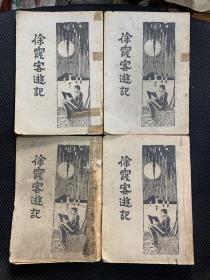 徐霞客遊記
徐霞客遊記
徐霞客遊記
徐霞客遊記